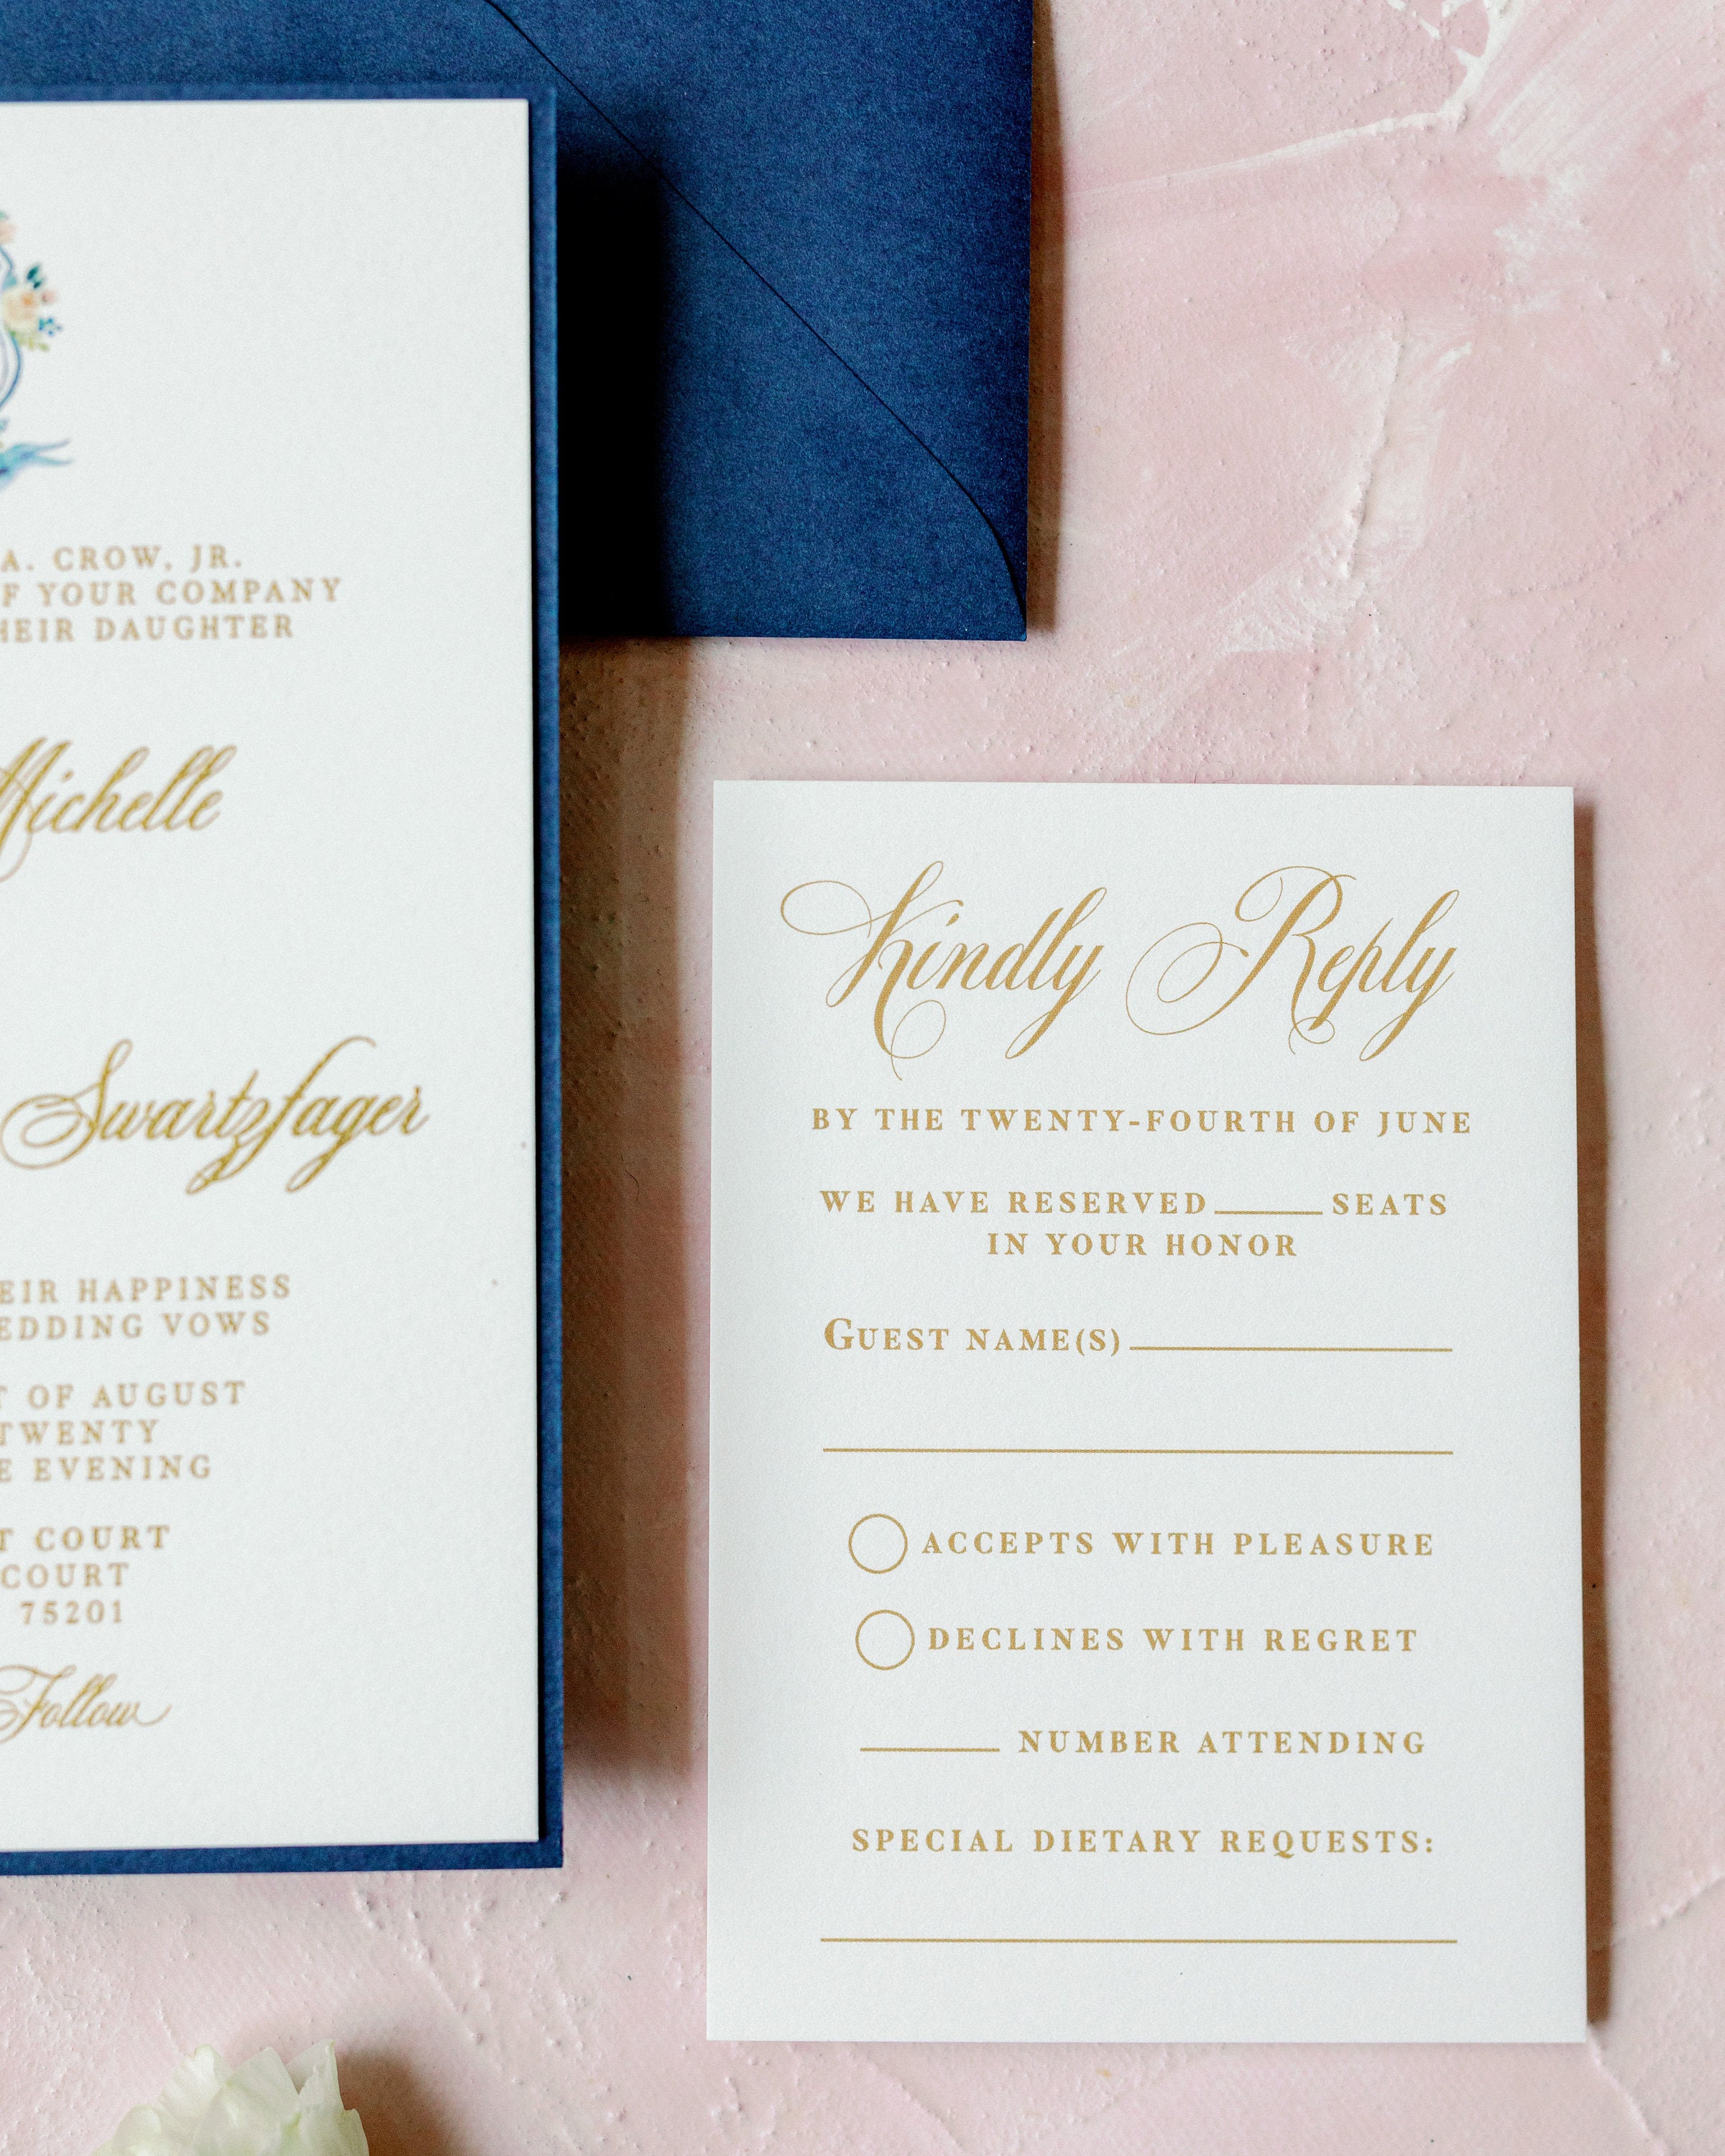 A. CROW, JR.
F YOUR COMPANY
HEIR DAUGHTER
Michelle
Swartzfager
EIR HAPPINESS
EDDING VOWS
T OF AUGUST
TWENTY
E EVENING
T COURT
COURT
75201
Follow
Kindly Reply
BY THE TWENTY-FOURTH OF JUNE
WE HAVE RESERVED ____ SEATS
IN YOUR HONOR
GUEST NAME(S)
ACCEPTS WITH PLEASURE
DECLINES WITH REGRET
____ NUMBER ATTENDING
SPECIAL DIETARY REQUESTS: